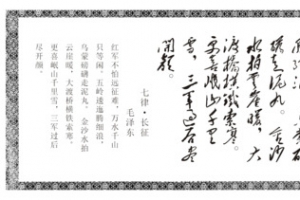 礴走泥丸。金沙
水拍雲崖暖,大
渡橋横鐵索寒
更喜岷山千里
雪,三軍過后盡
開顏。
七律·长征
毛泽东
红军不怕远征难,万水千山
只等闲。五岭逶迤腾细浪,
乌蒙磅礴走泥丸。金沙水拍
云崖暖,大渡桥横铁索寒。
更喜岷山千里雪,三军过后
尽开颜。